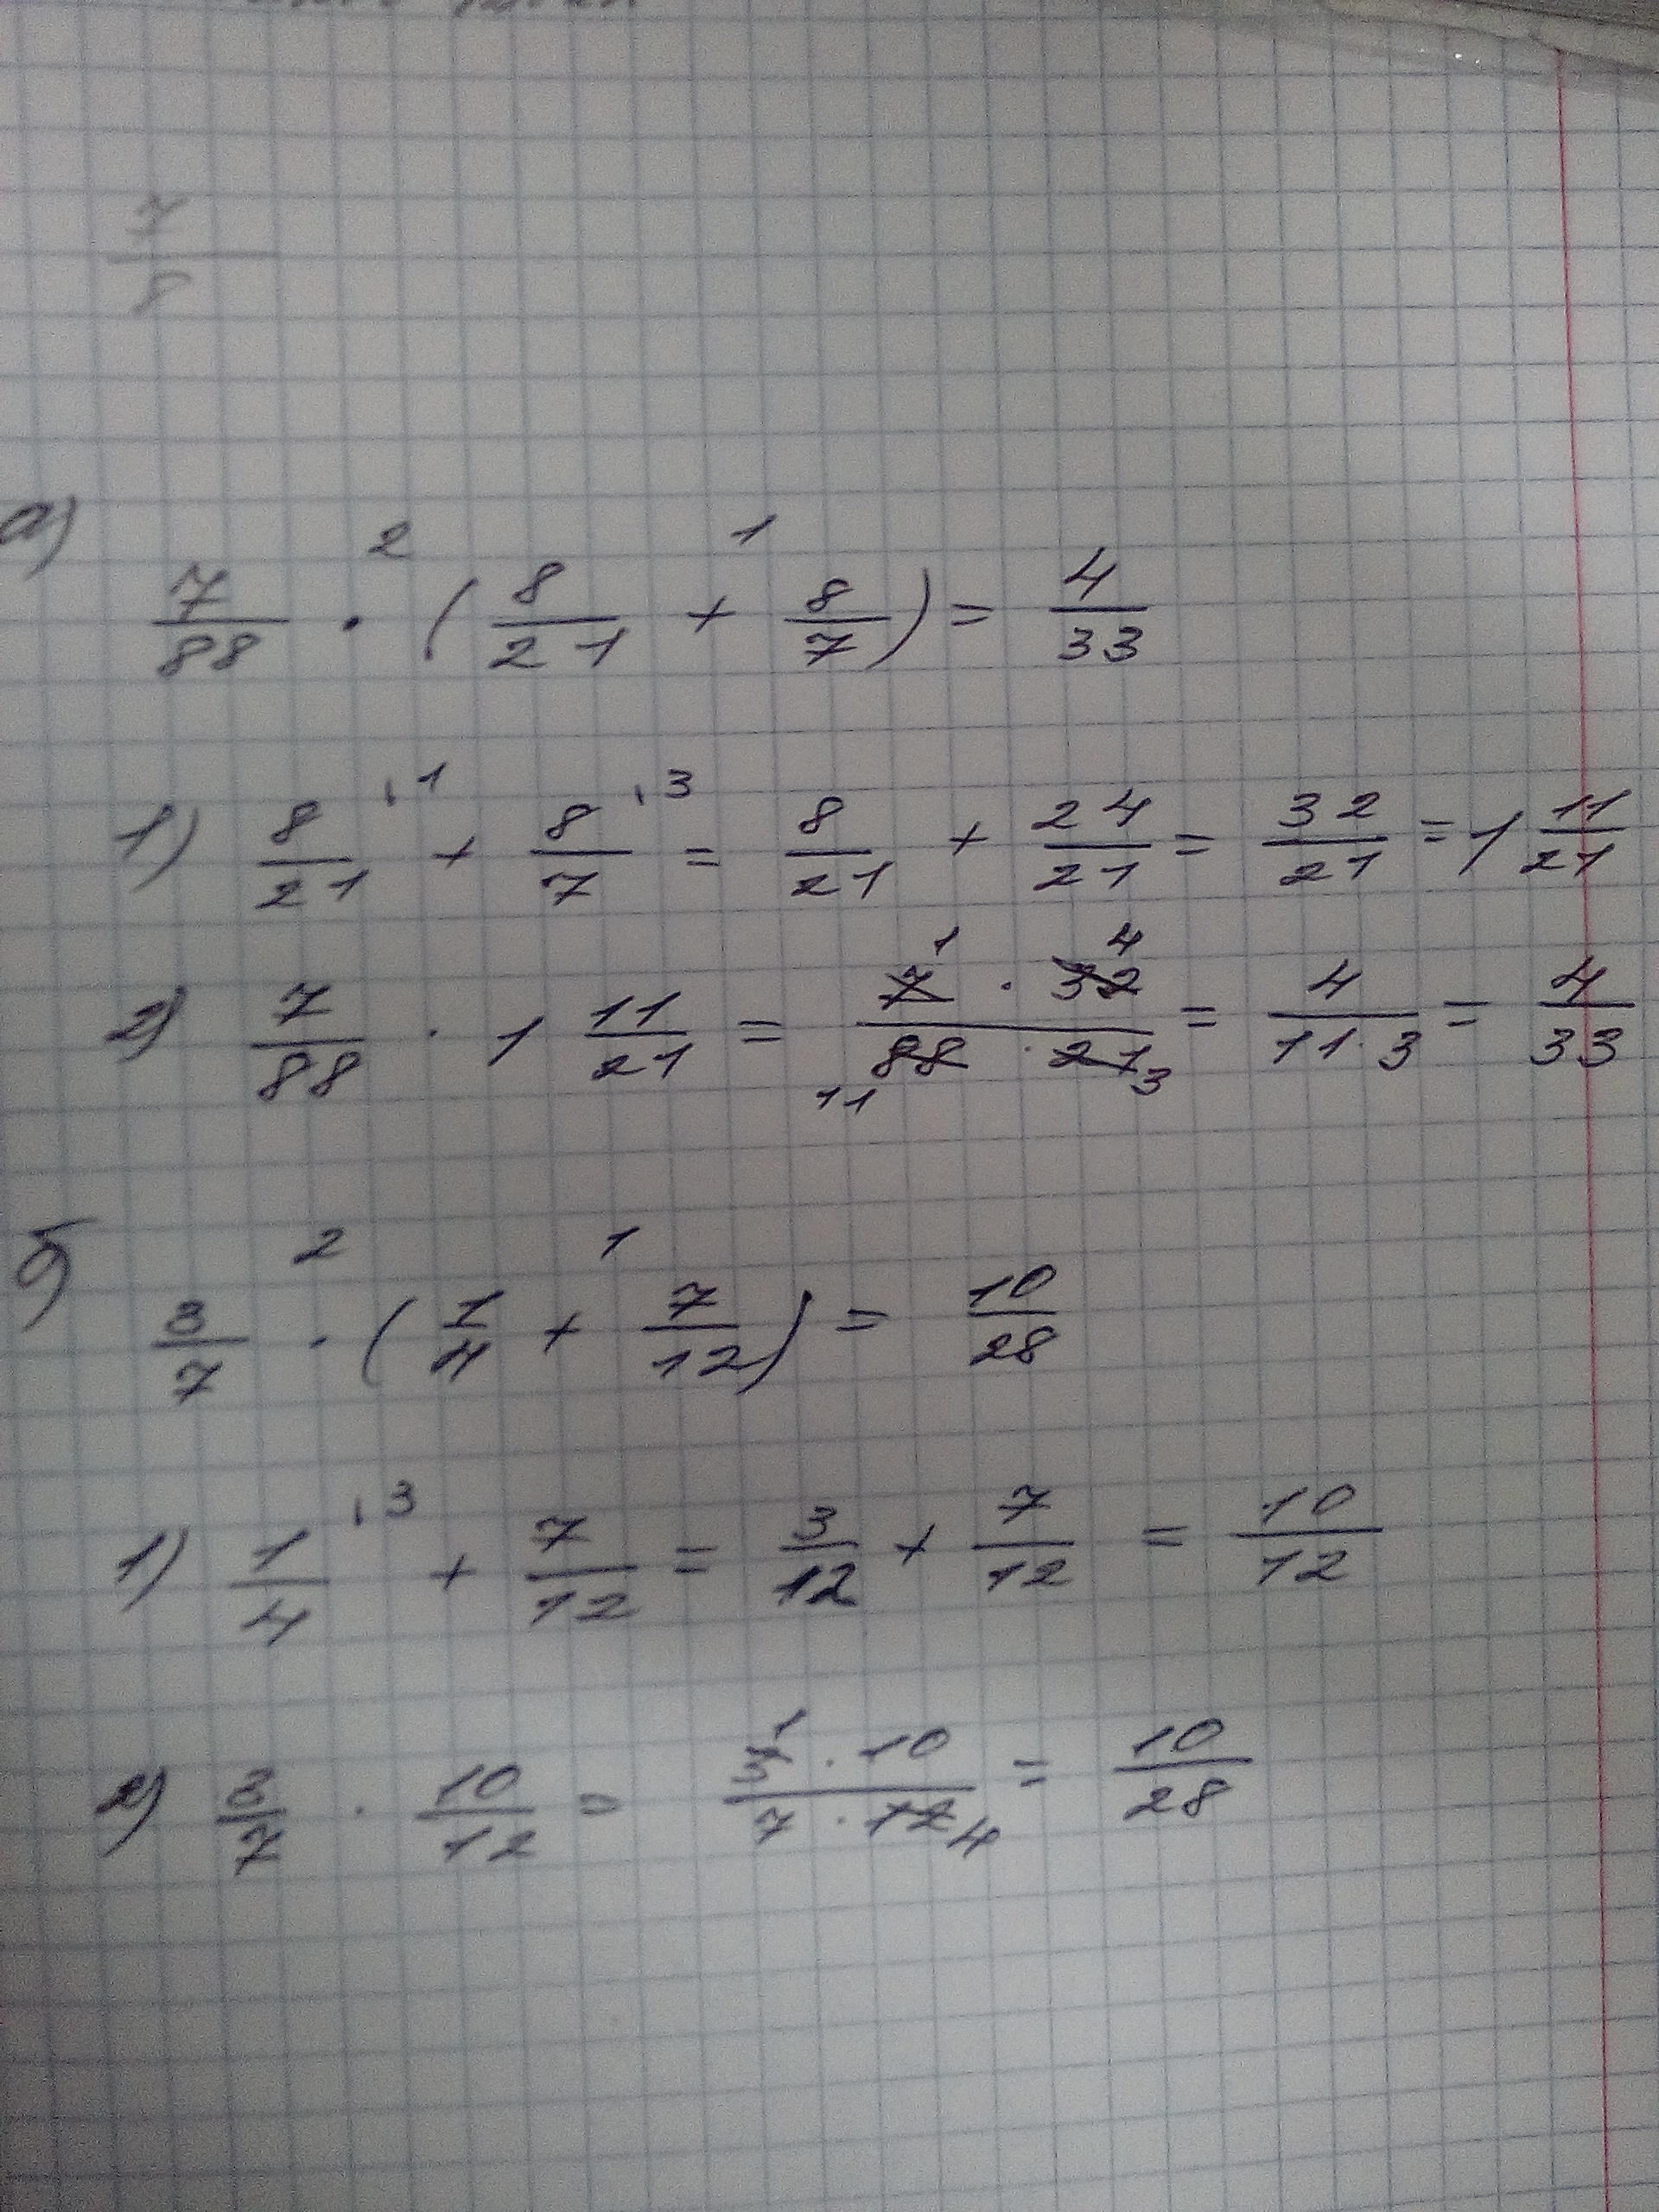 7/8
а)
2 1
7/88 · (8/21 + 8/7) = 4/33
1) 8/21 ·1 + 8/7 ·3 = 8/21 + 24/21 = 32/21 = 1 11/21
2) 7/88 · 1 11/21 = 7 1 · 32 4 / 88 11 · 21 3 = 4/11·3 = 4/33
б)
2 1
3/7 · (1/4 + 7/12) = 10/28
1) 1/4 ·3 + 7/12 = 3/12 + 7/12 = 10/12
2) 3/7 · 10/12 = 3 1 · 10 / 7 · 12 4 = 10/28